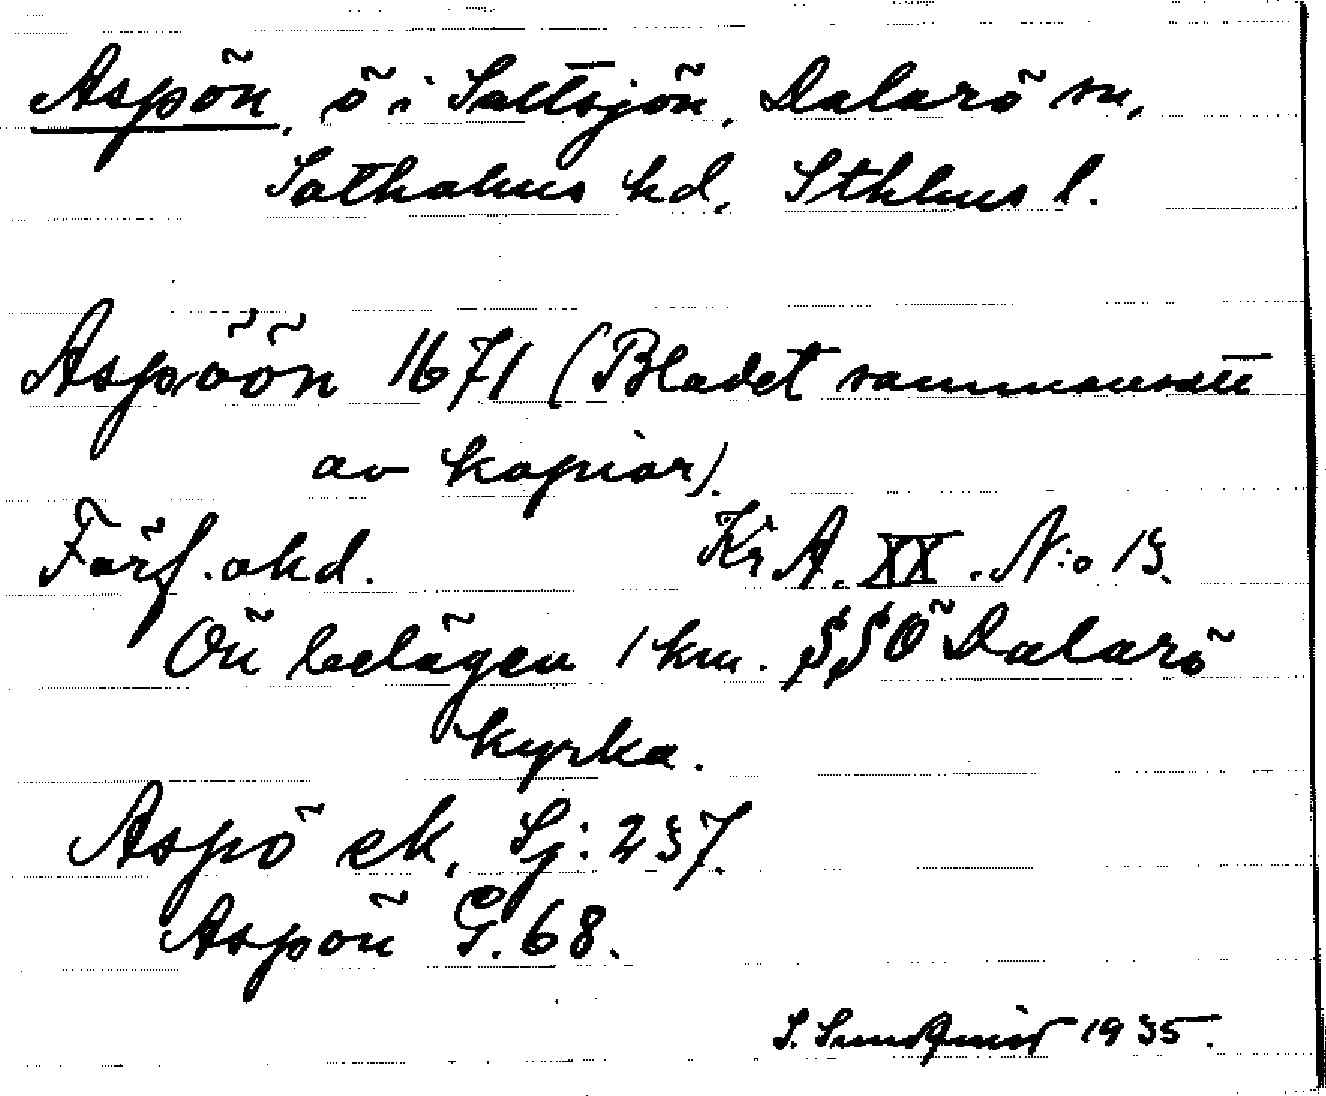 Aspön, ö i Saltsjön, Dalarö sn,
Sotholms hd, Sthlms l.
Aspöön 1671 (Bladet sammansatt
av kopior).
Förf. okd. Kr.A. XX. N:o 13.
Ön belägen 1 km. SSÖ Dalarö
kyrka.
Aspö ek. Sj: 237.
Aspön G. 68.
S. Sundqvist 1935.